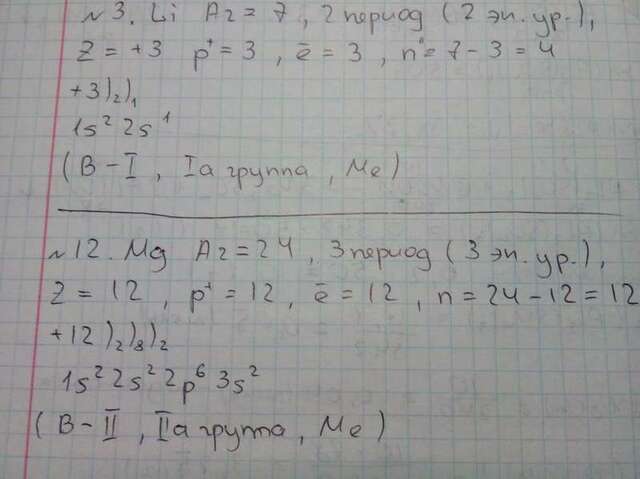 №3. Li Az = 7, 2 период (2 эл. ур.),
Z = +3 p⁺ = 3, ē = 3, n⁰ = 7 - 3 = 4
+3)₂)₁
1s² 2s¹
(B - I, Iа группа, Me)
№12. Mg Az = 24, 3 период (3 эл. ур.),
Z = 12, p⁺ = 12, ē = 12, n = 24 - 12 = 12
+12)₂)₈)₂
1s² 2s² 2p⁶ 3s²
(B - II, IIа группа, Me)